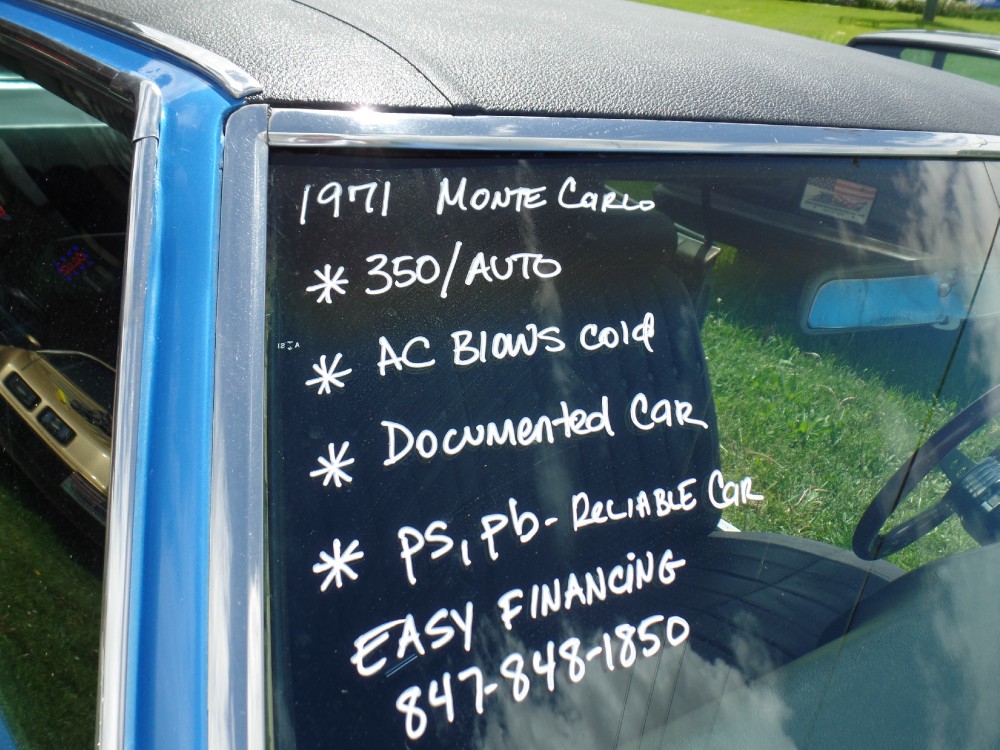 1971 Monte Carlo
* 350/AUTO
* AC Blows cold
* Documented Car
* PS, Pb - Reliable Car
EASY FINANCING
847-848-1850